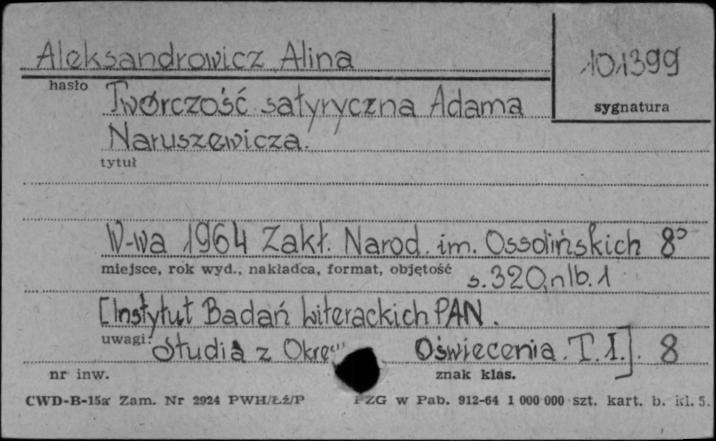 Aleksandrowicz Alina
101399
hasło
sygnatura
Twórczość satyryczna Adama
Naruszewicza.
tytuł
W-wa 1964 Zakł. Narod. im. Ossolińskich 8°
miejsce, rok wyd., nakładca, format, objętość
s. 320, nlb. 1
[Instytut Badań Literackich PAN.
uwagi: Studia z Oświecenia. T. I.]. 8
nr inw.
znak klas.
CWD-B-15a Zam. Nr 2924 PWH/Łź/P PZG w Pab. 912-64 1 000 000 szt. kart. b. kl. 5.